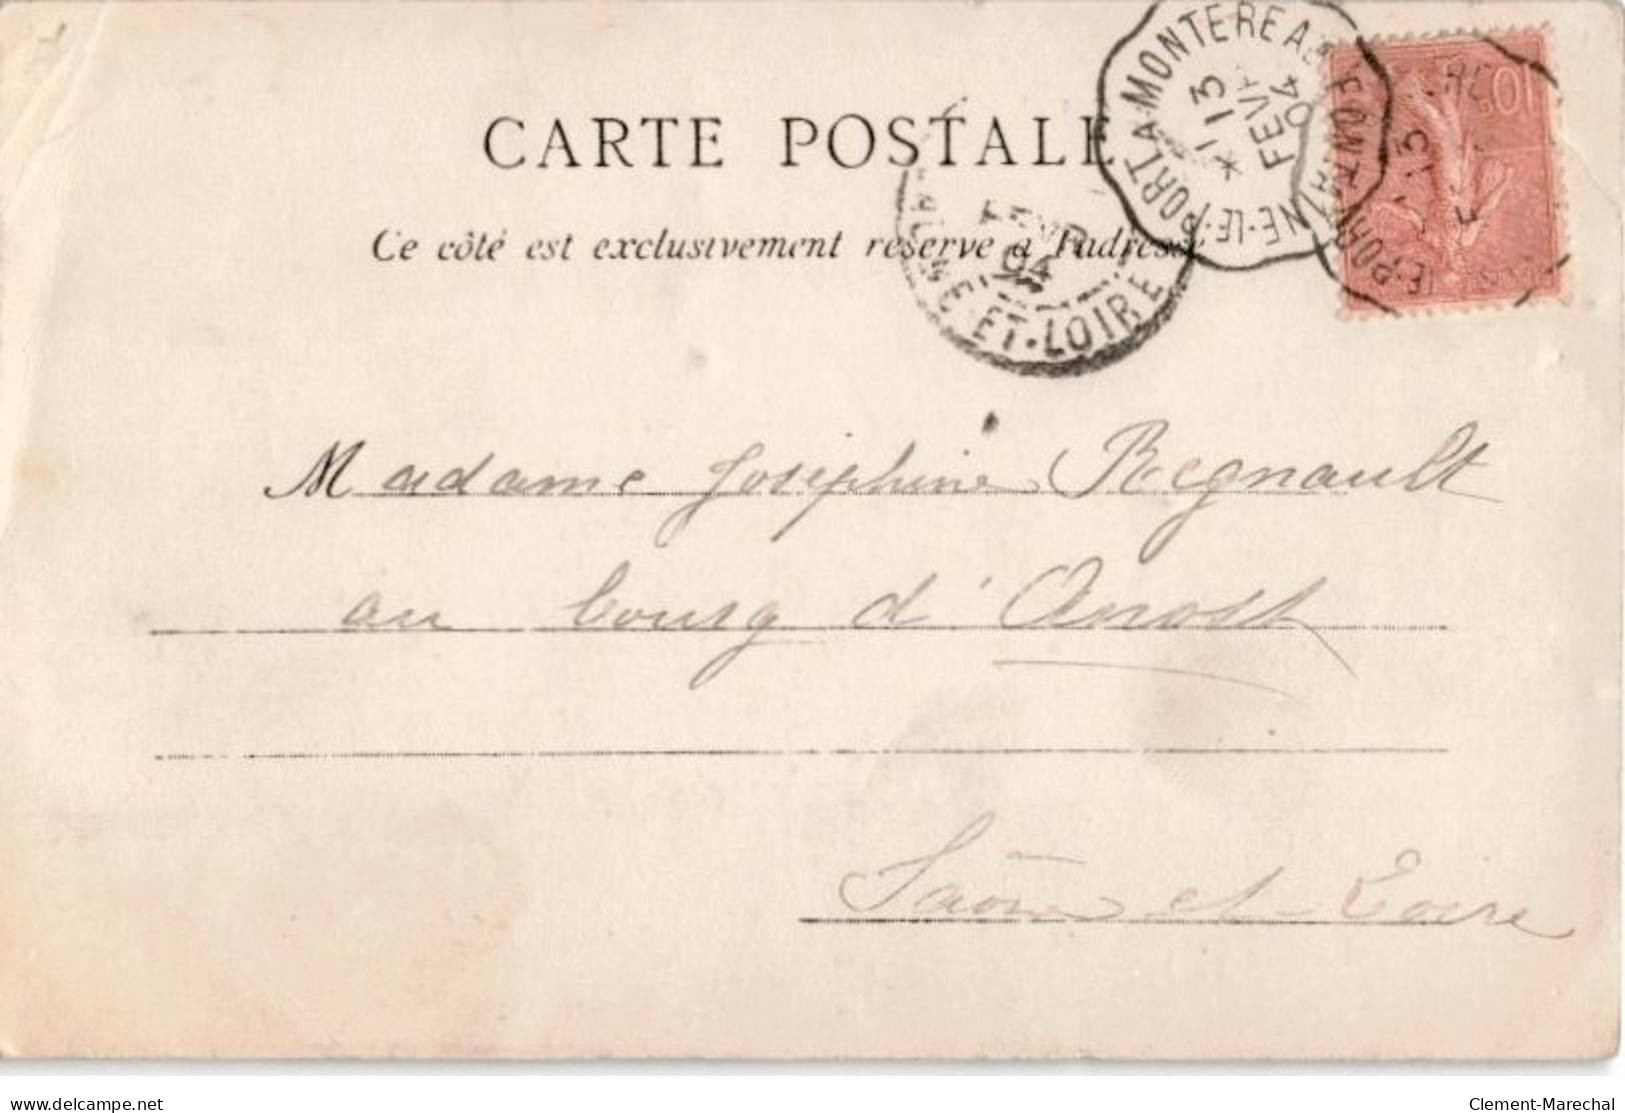 CARTE POSTALE
Ce côté est exclusivement réservé à l'adresse
A MONTEREAU
13
FEVR
04
LE-PORT
FONT
10c
13
LE-POR
04
ET-LOIRE
Madame Joséphine Regnault
au bourg d'Anost
Saône et-Loire
delcampe.net
Clement-Marechal